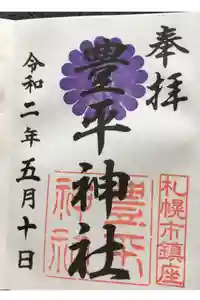 奉拝
札幌市鎮座
豊平神社
豊平神社
令和二年五月十日